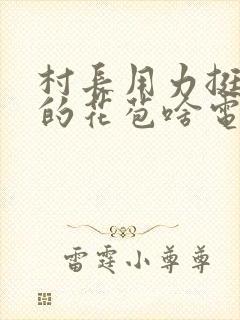 村长用力挺
的花苞啥电
雷霆小尊尊